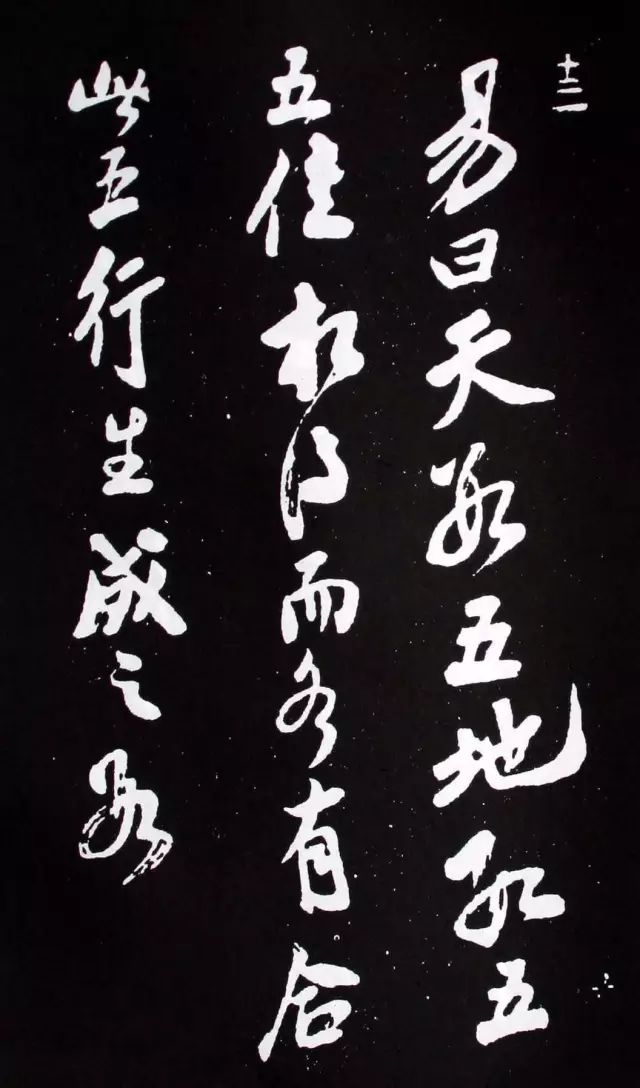 十三
易曰天數五地數五
五位相得而各有合
此五行生成之數